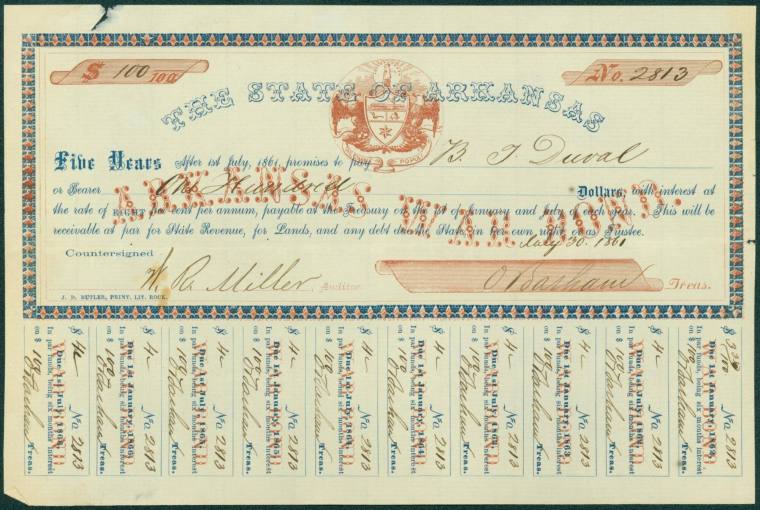 $ 100/100
No. 2813
THE STATE OF ARKANSAS
Five Years After 1st July, 1861, promises to pay B. T. Duval
or Bearer One Hundred Dollars, with interest at
the rate of EIGHT per cent per annum, payable at the Treasury on the 1st of January and July of each year. This will be
receivable at par for State Revenue, for Lands, and any debt due the State, in her own right, or as Trustee.
ARKANSAS WAR BOND.
July 30. 1861
Countersigned
W. R. Miller, Auditor.
O Basham Treas.
J. D. BUTLER, PRINT. LIT. ROCK.
$ 4/c No 2813
Due 1st July, 1866,
In par funds, being six months interest
on $ 100 O Basham Treas.
$ 4/c No 2813
Due 1st January, 1866,
In par funds, being six months interest
on $ 100 O Basham Treas.
$ 4/c No 2813
Due 1st July, 1865,
In par funds, being six months interest
on $ 100 O Basham Treas.
$ 4/c No 2813
Due 1st January, 1865,
In par funds, being six months interest
on $ 100 O Basham Treas.
$ 4/c No 2813
Due 1st July, 1864,
In par funds, being six months interest
on $ 100 O Basham Treas.
$ 4/c No 2813
Due 1st January, 1864,
In par funds, being six months interest
on $ 100 O Basham Treas.
$ 4/c No 2813
Due 1st July, 1863,
In par funds, being six months interest
on $ 100 O Basham Treas.
$ 4/c No 2813
Due 1st January, 1863,
In par funds, being six months interest
on $ 100 O Basham Treas.
$ 4/c No 2813
Due 1st July, 1862,
In par funds, being six months interest
on $ 100 O Basham Treas.
$ No 2813
Due 1st January, 1862,
In par funds, being six months interest
on $ 100 O Basham Treas.